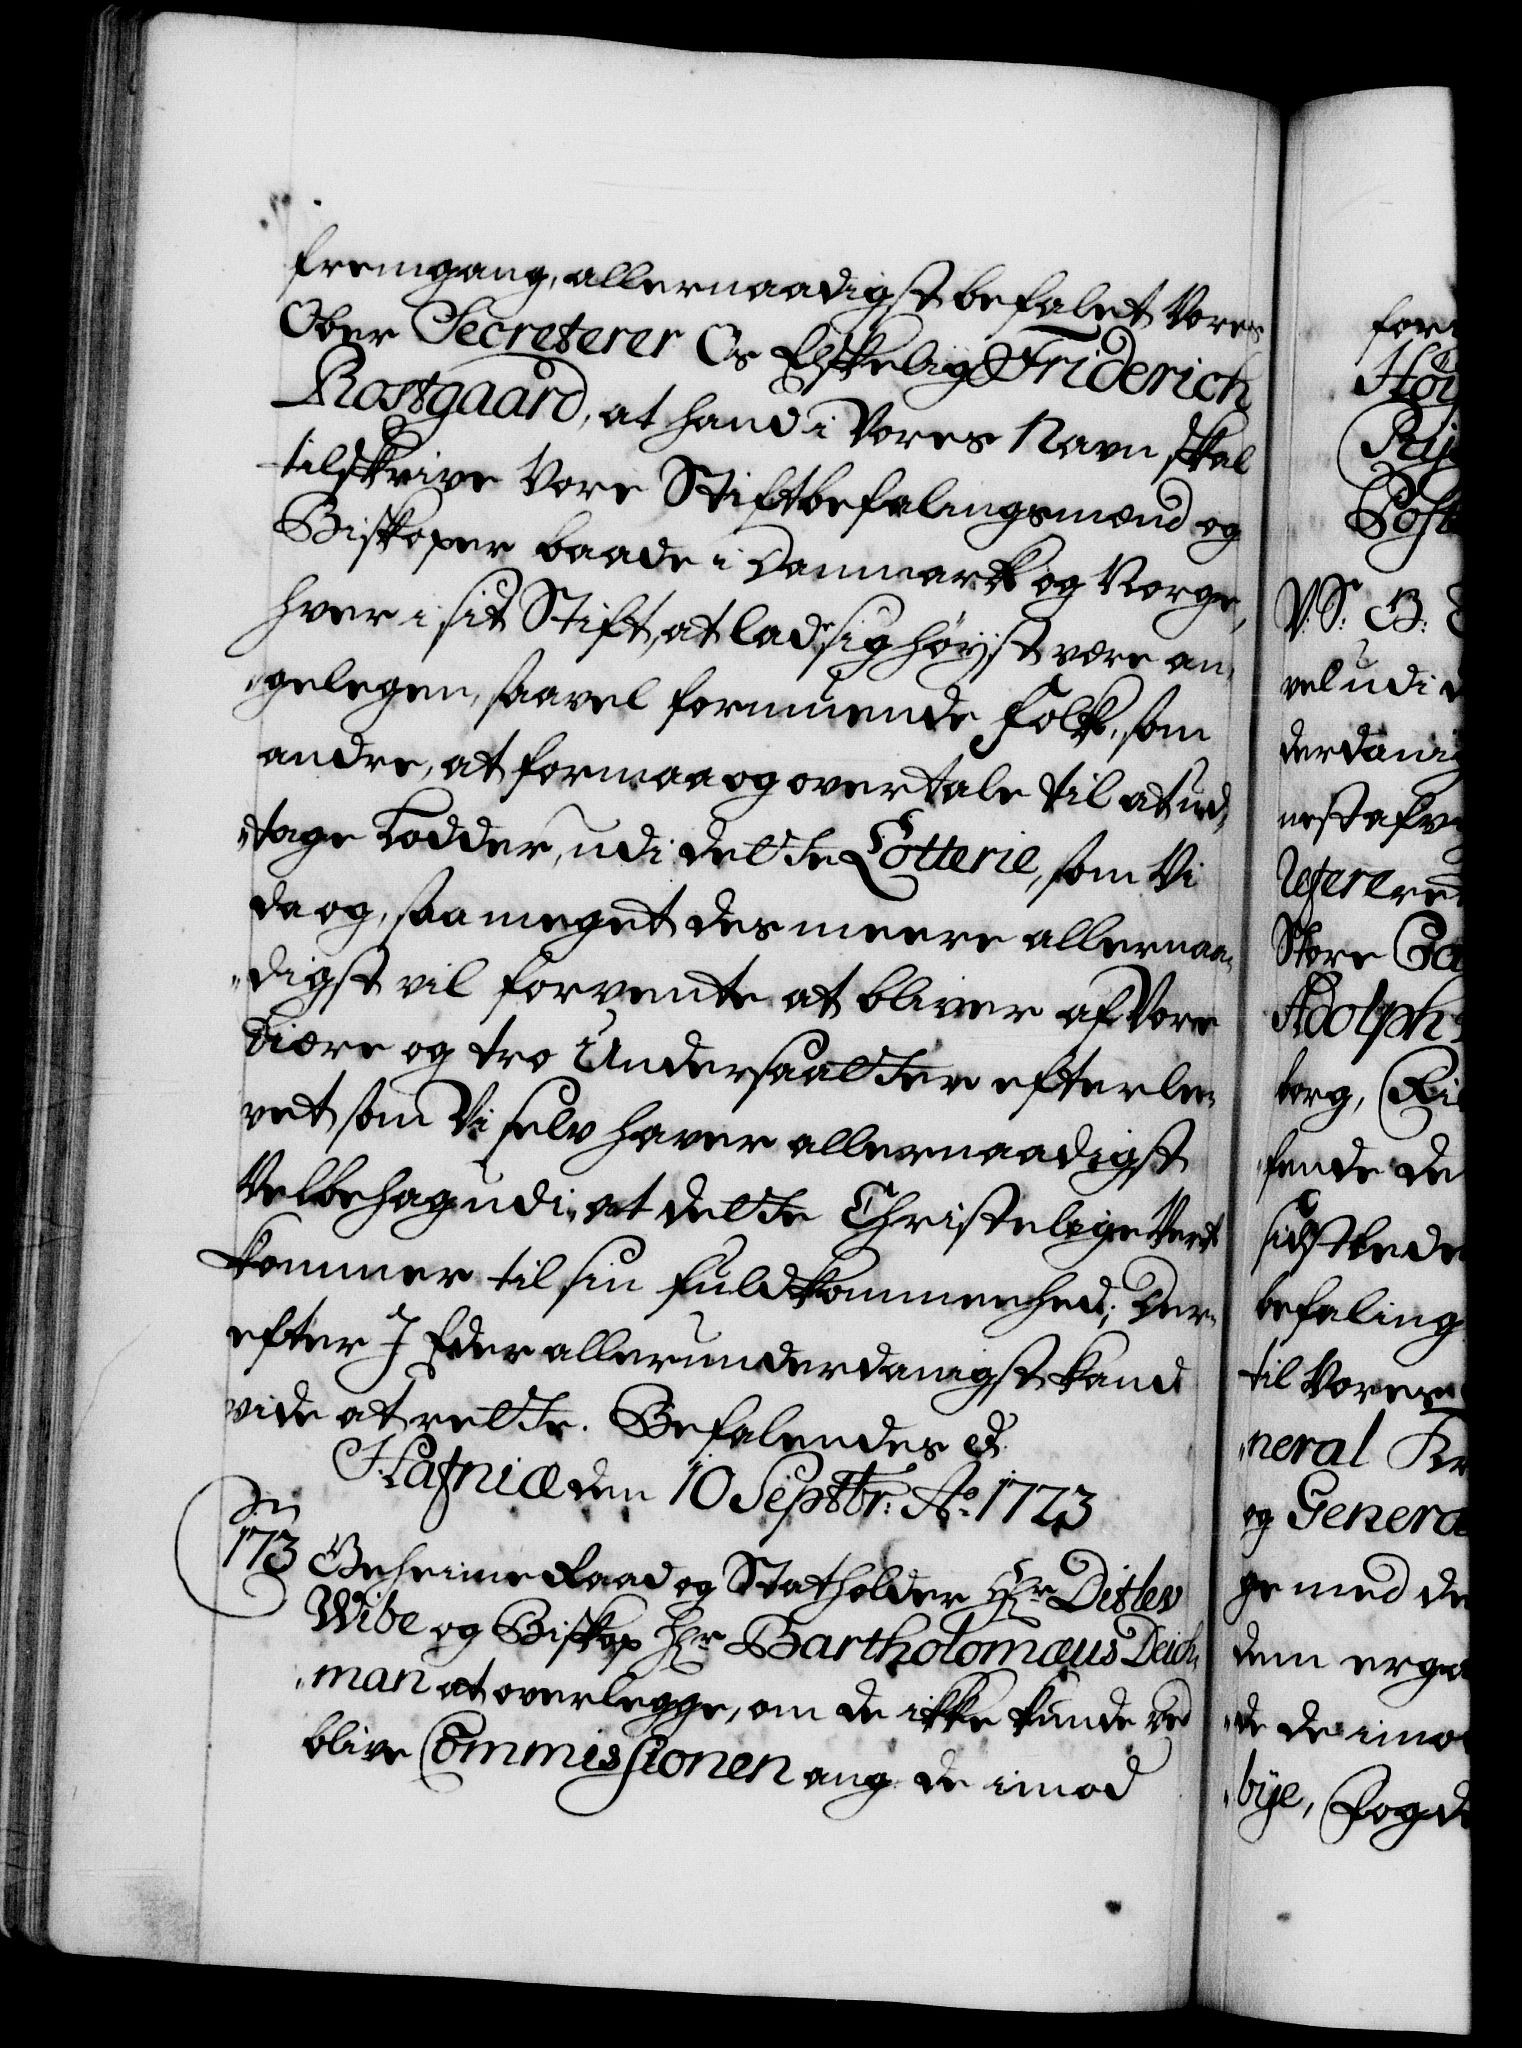 fremgang, allernaadigst befalet Vores
Ober Secreterer Os Elskelig Friderich
Rostgaard, at hand i Vores Navn skal
tilskrive Vore Stiftbefalingsmænd og
Biskoper baade i Danmark og Norge,
hver i sit Stift, at lade sig høyst være an-
gelegen, saavel formuende Folk, som
andre, at formaa og overtale til at ud-
tage Lodder, udi dette Lotterie, som Vi
da og, saa meget des meere allernaa-
digst vil forvente at bliver af Vore
kiære og tro Undersaatter efterle-
vet som Vi selv haver allernaadigst
Velbehag udi, at dette Christelige Verk
kommer til sin fuldkommenhed; Der-
efter I Eder allerunderdanigst kand
vide at rette. Befalendes etc.
Hafniæ den 10 Septbr: Ao. 1723
173
Geheime Raad og Statholder Hr Ditlev
Wibe og Biskop Hr Bartholomæus Deich-
man at overlegge, om de ikke kunde ved
blive Commissionen ang. de imod
for
Høy
Post
V: S: G:
vel udi
derdanig
nest afv
Refere
Store
Adolph
borg,
fende de
sidst lede
befaling
til Vores
neral Kr
og Genera
ge med de
dem erga
de de imo
bye, Fogde